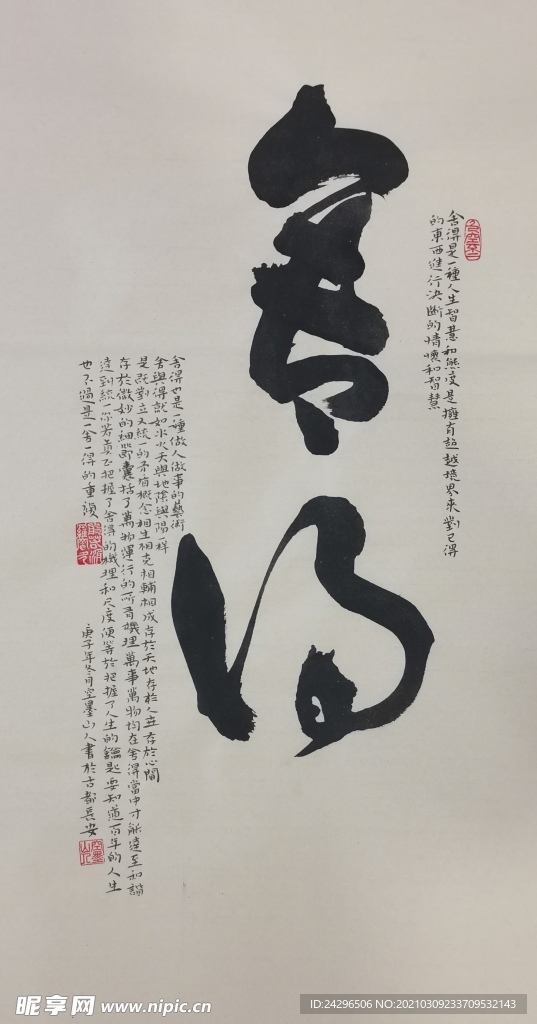 舍得
舍得是一種人生智慧和態度是擁有超越境界來對已得
的東西進行決斷的情懷和智慧
舍得也是一種做人做事的藝術
舍與得就如水火天與地陰與陽一樣
是既對立又統一的矛盾概念相生相克相輔相成存於天地存於人世存於心間
存於微妙的細節囊括了萬物運行的所有機理萬事萬物均在舍得當中才能達至和諧
達到統一你若真正把握了舍得的機理和尺度便等於把握了人生的鑰匙要知道百年的人生
也不過是一舍一得的重複
庚子年冬月空墨山人書於古都長安
空墨
山人
昵享网 www.nipic.cn
ID:24296506 NO:20210309233709532143